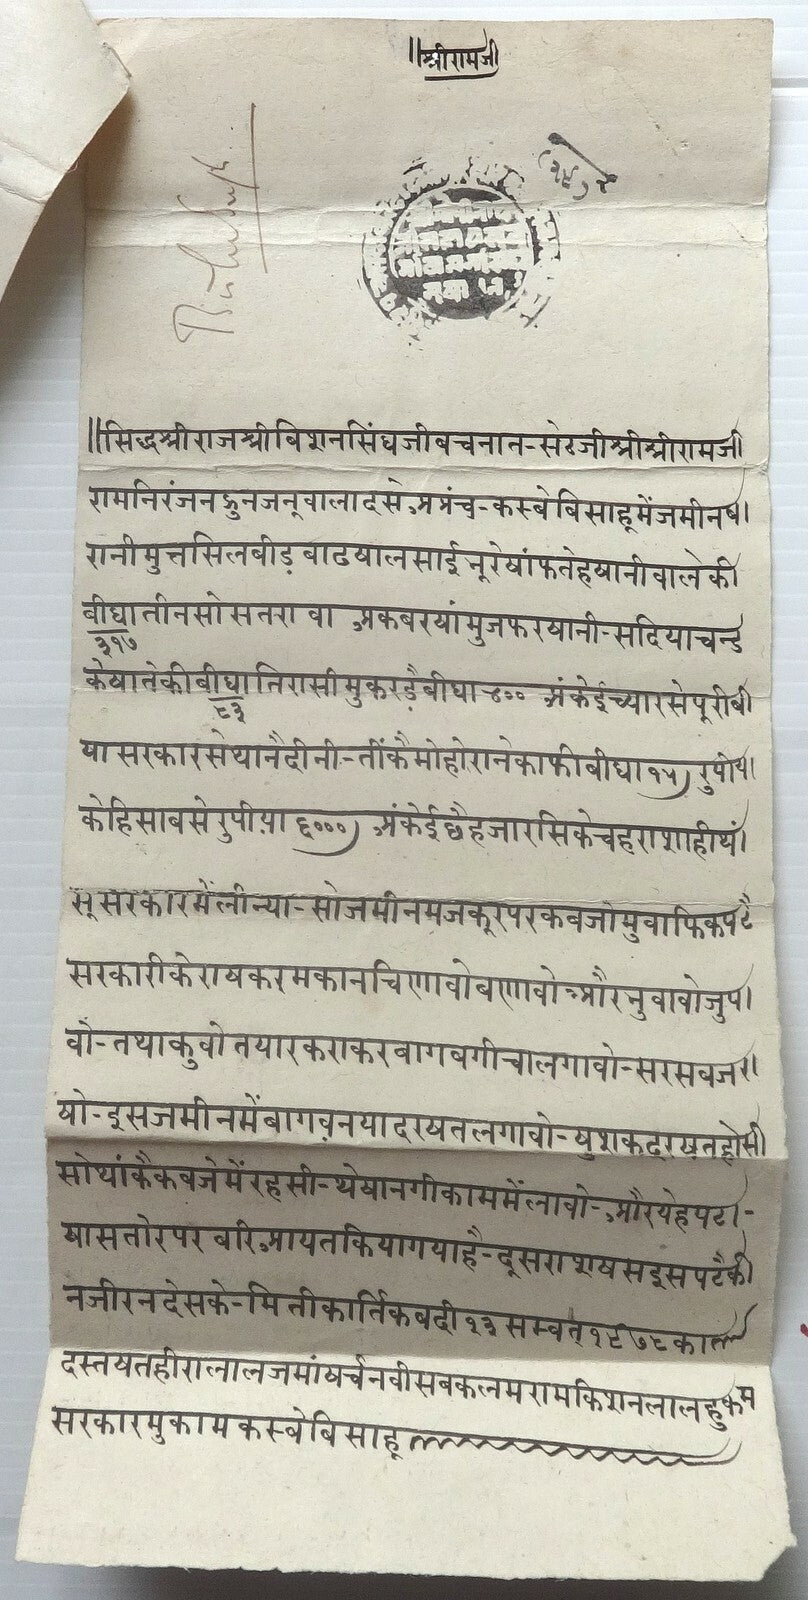 ॥श्रीरामजी
॥सिद्धश्रीराजश्रीबिशनसिंघजीबचनात-सेठजीश्रीश्रीरामजी
रामनिरंजनझुनजनूवालादसे अप्रंच-कस्बेबिसाहूमेंजमीनबा
रानीमुत्तसिलबीड़बाढयालसाईनूरेषांफतेहषानीवालेकी
बीघातीनसोसतरावा अकबरषांमुजफरषानी-सदियाचन्ड
३१७
केषातेकीबीघातिरासीमुकरडैबीघा४०० अंकेईच्यारसेपूरीबी
८३
घासरकारसेथानैदीनी-तींकैमोहोरानेकाफीबीघा१५)रुपीया
केहिसाबसेरुपीया६०००)अंकेईछैहजारसिकेचहराशाहीथां
सूसरकारमेंलीन्या-सोजमीनमजकूरपरकबजोमुवाफिकपटै
सरकारीकेराषकरमकानचिणावोबणावो-औरनुवावोजुपा
वो-तथाकुवोतयारकराकरबागबगीचालगावो-सरसबजरा
षो-इसजमीनमेंबागवनयादरषतलगावो-षुशकदरषतहोसी
सोथांकैकबजेमेंरहसी-थेषानगीकाममेंलावो-औरयेहपटा-
षासतोरपरबरिआयतकियागयाहै-दूसराशषसइसपटैकी
नजीरनदेसके-मितीकार्तिकबदी१३सम्वत्१९७८का
दसतषतहीरालालजमांषर्चनवीसबकलमरामकिशनलालहुकम
सरकारमुकामकस्बेबिसाहू